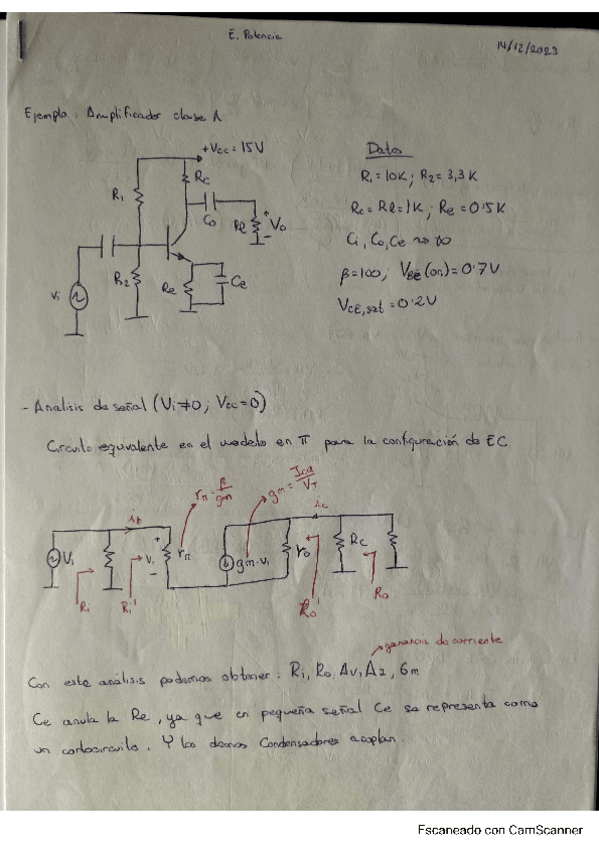 E. Potencia
14/12/2023
Ejemplo: Amplificador clase A
+Vcc = 15V
Rc
R1
Co
Rl
+
Vo
-
R2
Re
Ce
Vi
Datos
R1 = 10K ; R2 = 3,3 K
Rc = Rl = 1K ; Re = 0'5K
Ci, Co, Ce ≈ ∞
β = 100 ; VBE(on) = 0'7V
VCE,sat = 0'2V
- Analisis de señal (Vi ≠ 0 ; Vcc = 0)
Circuito equivalente en el modelo en π para la configuración de EC
rπ = β/gm
gm = ICQ/VT
ib
ic
Vi
+
Vi
-
rπ
gm·vi
ro
Rc
Ri
Ri'
Ro'
Ro
ganancia de corriente
Con este análisis podemos obtener: Ri, Ro, Av, AI, Gm
Ce anula la Re, ya que en pequeña señal Ce se representa como
un cortocircuito. Y los demas Condensadores acoplan.
Escaneado con CamScanner